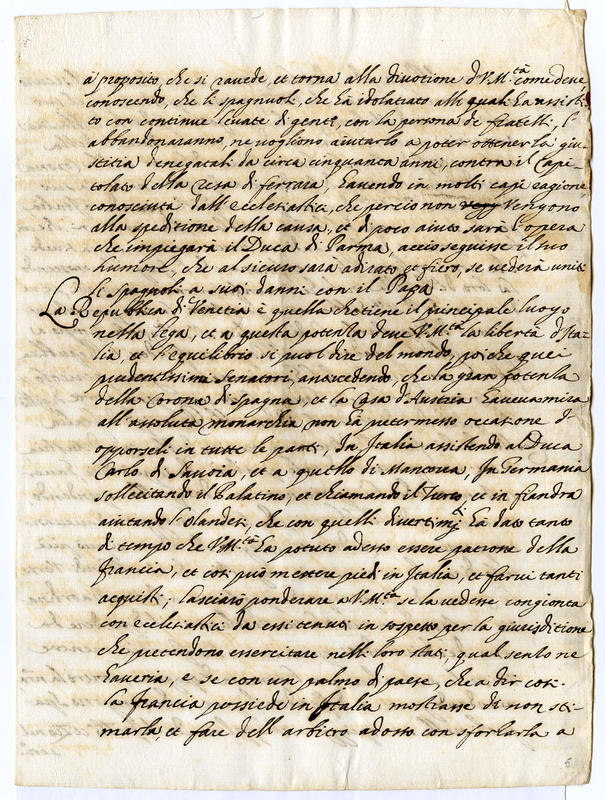 à proposito, che si ravede, et torna alla divotione d V.M.tà come deve,
conoscendo, che li spagnuoli, che ha idolatrato alli quali ha assisti-
to con continue levate di genti, con la persona de fratelli, l'
abbandonaranno, ne vogliono aiutarlo a poter ottener la giu-
stitia denegatali da circa cinquanta anni, contra il Capi-
tolato della resa di ferrara, havendo in molti capi ragione
conosciuta dall'ecclesiastici, che percio non vengono
alla speditione della causa, et di poco aiuto sarà l'opera
che impiegarà il Duca di Parma, accio seguisse il suo
humore, che al sicuro sarà adirato et fiero, se vederà uniti
li spagnoli a suoi danni con il Papa
La Republica di Venetia è quella che tiene il principale luogo
nella lega, et a questa potenza deve V.M.tà la libertà d'Ita-
lia, et l'equilibrio si puol dire del mondo, poi che quei
prudentissimi senatori, antivedendo, che la gran potenza
della Corona di spagna, et la Casa d'Austria haveva mira
all'assoluta monarchia non ha permesso occasione d
opporseli in tutte le parti, In Italia assistendo al Duca
Carlo di Savoia, et a quello di Mantova, In Germania
sollecitando il Palatino, et chiamando il Turco, et in fiandra
aiutando l'olandesi, che con quelli divertimti, ha dato tanto
di tempo che V.M.tà ha potuto adesso essere patrone della
francia, et cosi può mettere piedi in Italia, et farvi tanti
acquisti; lasciarò ponderare a V.M.tà se la vedesse congionta
con ecclesiastici da essi tenuti in sospetto per la giurisditione
che pretendono essercitare nelli loro stati, qual senso ne
haveria, e se con un palmo di paese, che a dir cosi
la francia possiede in Italia mostrasse di non sti-
marla, et fare dell arbitro adosso con sforzarla a